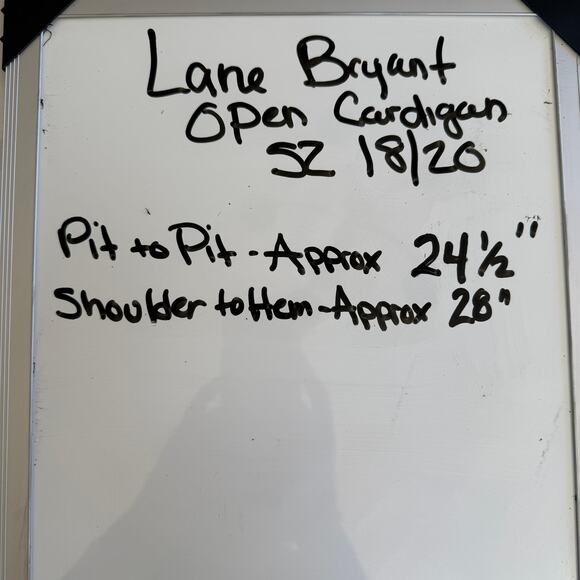 Lane Bryant
Open Cardigan
SZ 18/20
Pit to Pit - Approx 24 1/2"
Shoulder to Hem - Approx 28"